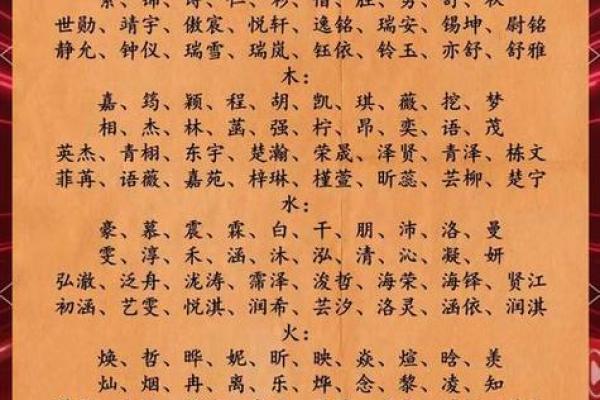 世勋、靖宇、傲宸、悦轩、逸铭、瑞安、锡坤、尉铭
静允、钟仪、瑞雪、瑞岚、钰依、铃玉、亦舒、舒雅
木：
嘉、筠、颖、程、胡、凯、琪、薇、挖、梦
相、杰、林、菡、强、柠、昂、奕、语、茂
英杰、青栩、东宇、楚瀚、荣晟、泽贤、青泽、栋文
菲苒、语薇、嘉苑、梓琳、槿萱、昕蕊、芸柳、楚宁
水：
豪、慕、震、霖、白、千、朋、沛、洛、曼
雯、淳、禾、涵、沐、泓、清、沁、凝、妍
弘澈、泛舟、泷涛、霈泽、浚哲、海荣、海铎、贤江
初涵、艺雯、悦淇、润希、芸汐、洛灵、涵依、润淇
火：
焕、哲、晔、妮、昕、映、焱、煊、晗、美
灿、烟、冉、离、乐、烨、念、黎、凌、知